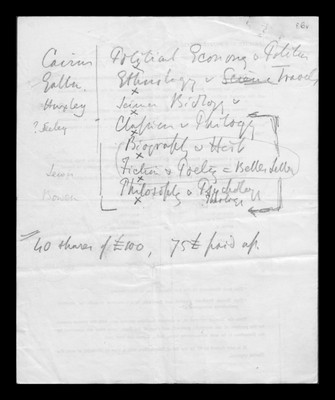 Cairnes Political Economy & Politics
Galton Ethnology & Science Travels
Huxley Science Biology &
? Seeley Classics & Philology
Biography & Hist
Fiction & Poetry = Belles Lettres
Philosophy & Psychology
Theology
40 shares of £100, 75£ paid up.